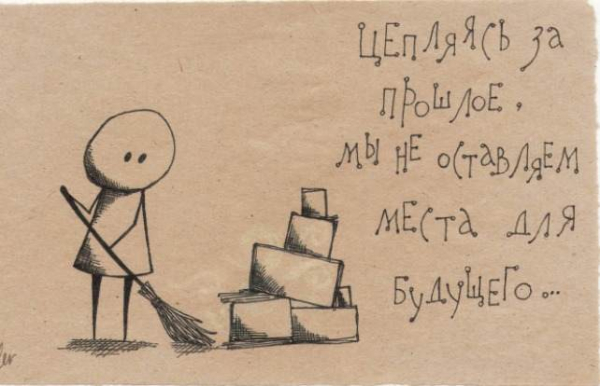 Цепляясь за
прошлое,
мы не оставляем
места для
будущего...